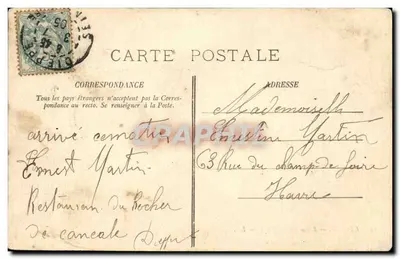 DIEPPE
CARTE POSTALE
CORRESPONDANCE
Tous les pays étrangers n'acceptent pas la Corres-
pondance au recto. Se renseigner à la Poste.
ADRESSE
arrivé ce matin
Ernest Martin
Restauran du Rocher
de Cancale Dieppe
Mademoiselle
Emeline Martin
63 Rue du champ de foire
Havre